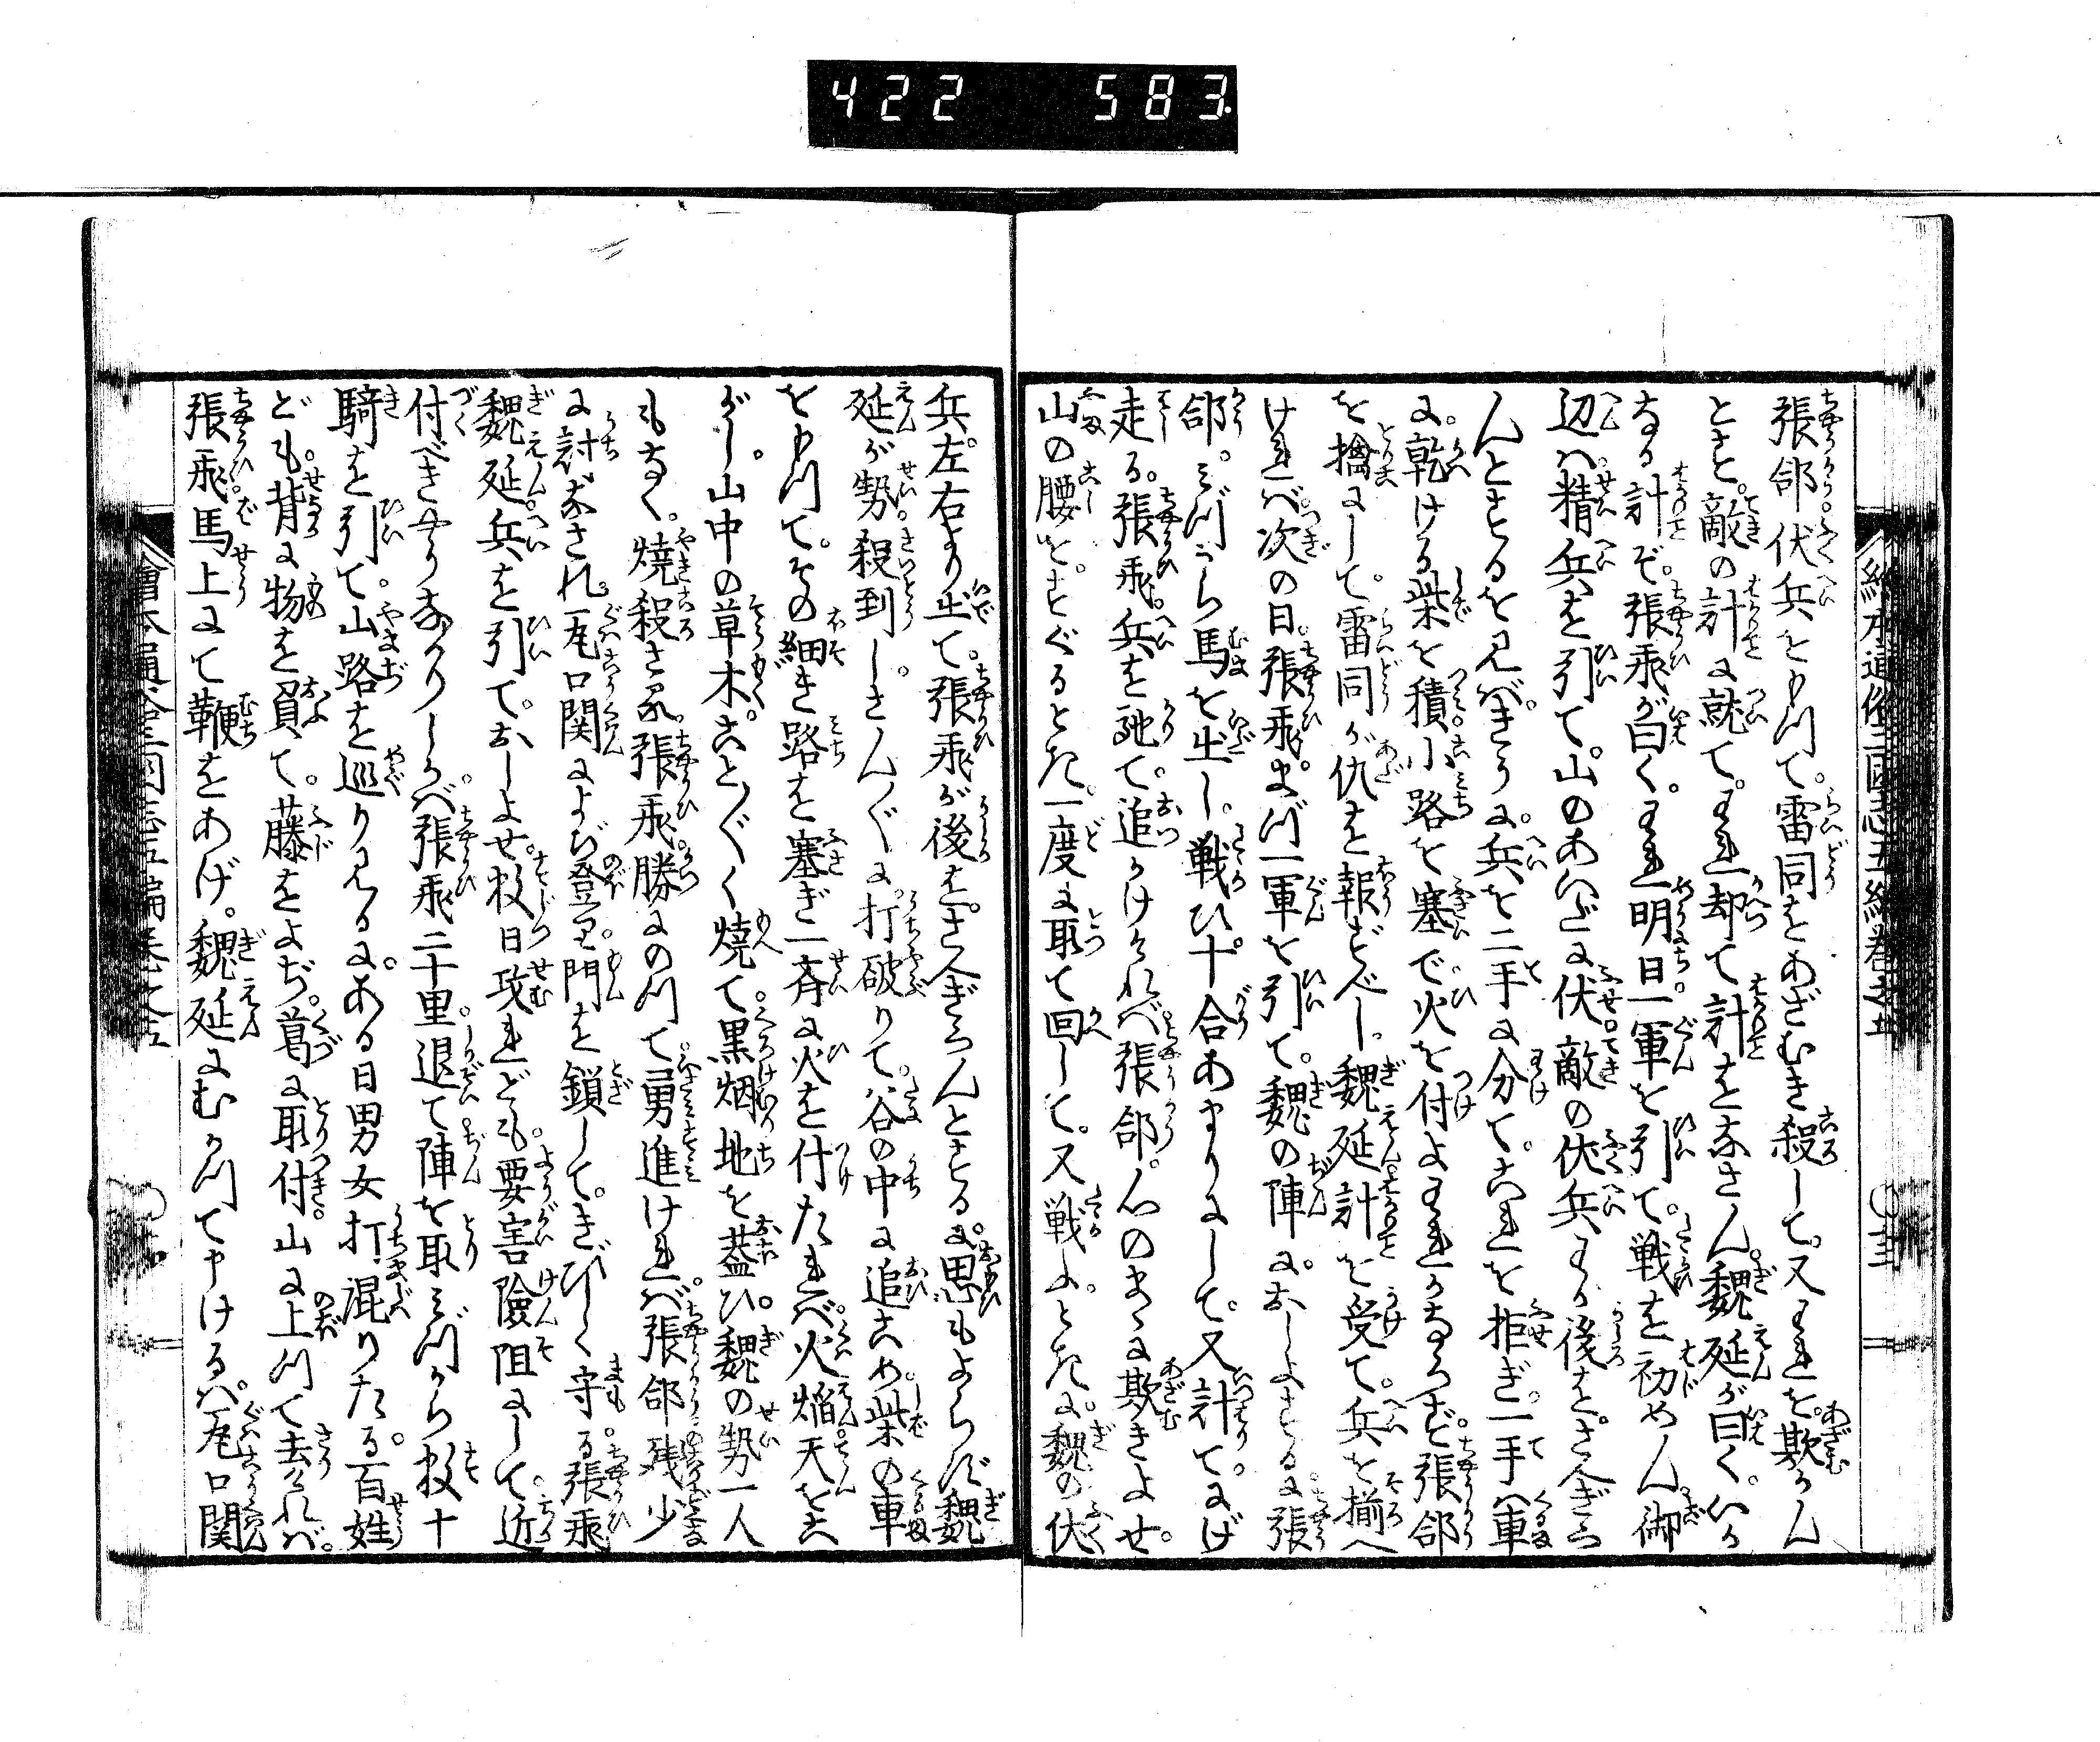 422 583
張郃伏兵を以て。雷同をあざむき殺して。又われを。欺かん
とす。敵の計に就て。われ却て計をなさん。魏延が曰く。いか
なる計ぞ。張飛が曰く。われ明日一軍を引て。戦を初めん御
辺ハ精兵を引て。山のあハひに伏。敵の伏兵わが後を。さへぎら
んとするを見バ。きうに。兵を二手に分て。これを拒ぎ。一手ハ車
に。乾ける柴を積。小路を塞で火を付よわれかならず。張郃
を擒にして。雷同が仇を報ずべし。魏延計を受て。兵を揃へ
けれバ。次の日。張飛。まづ一軍を引て。魏の陣に。おしよするに張
郃。みづから馬を出し。戦ひ。十合あまりにして。又計て。にげ
走る。張飛。兵を駈て。追かけけれバ張郃。心のまゝに欺きよせ。
山の腰を。すぐるとき。一度に取て回して。又戦ふ。ときに。魏の伏
兵。左右より出て。張飛が後を。さへぎらんとする。に思もよらず魏
延が勢。殺到し。さんぐに。打破りて。谷の中に追こめ。柴の車
を以て。その細き路を塞ぎ一斉に火を付たれバ。火焔。天をこ
がし。山中の草木。ことぐく焼て。黒烟地を蓋ひ。魏の勢一人
もなく。焼殺さる。張飛。勝にのつて勇進けれバ。張郃残少
に討なされ。瓦口関によぢ登里。門を鎖して。きびしく守る。張飛
魏延。兵を引て。おしよせ。数日攻れども。要害險阻にして。近
付べきやうなかりしかバ。張飛二十里。退て陣を取みづから数十
騎を引て。山路を巡り見るに。ある日男女打混りたる。百姓
ども。背に物を負て。藤をよぢ。葛に取付。山に上つて去けれバ。
張飛。馬上にて鞭をあげ。魏延にむかつて申けるハ。瓦口関